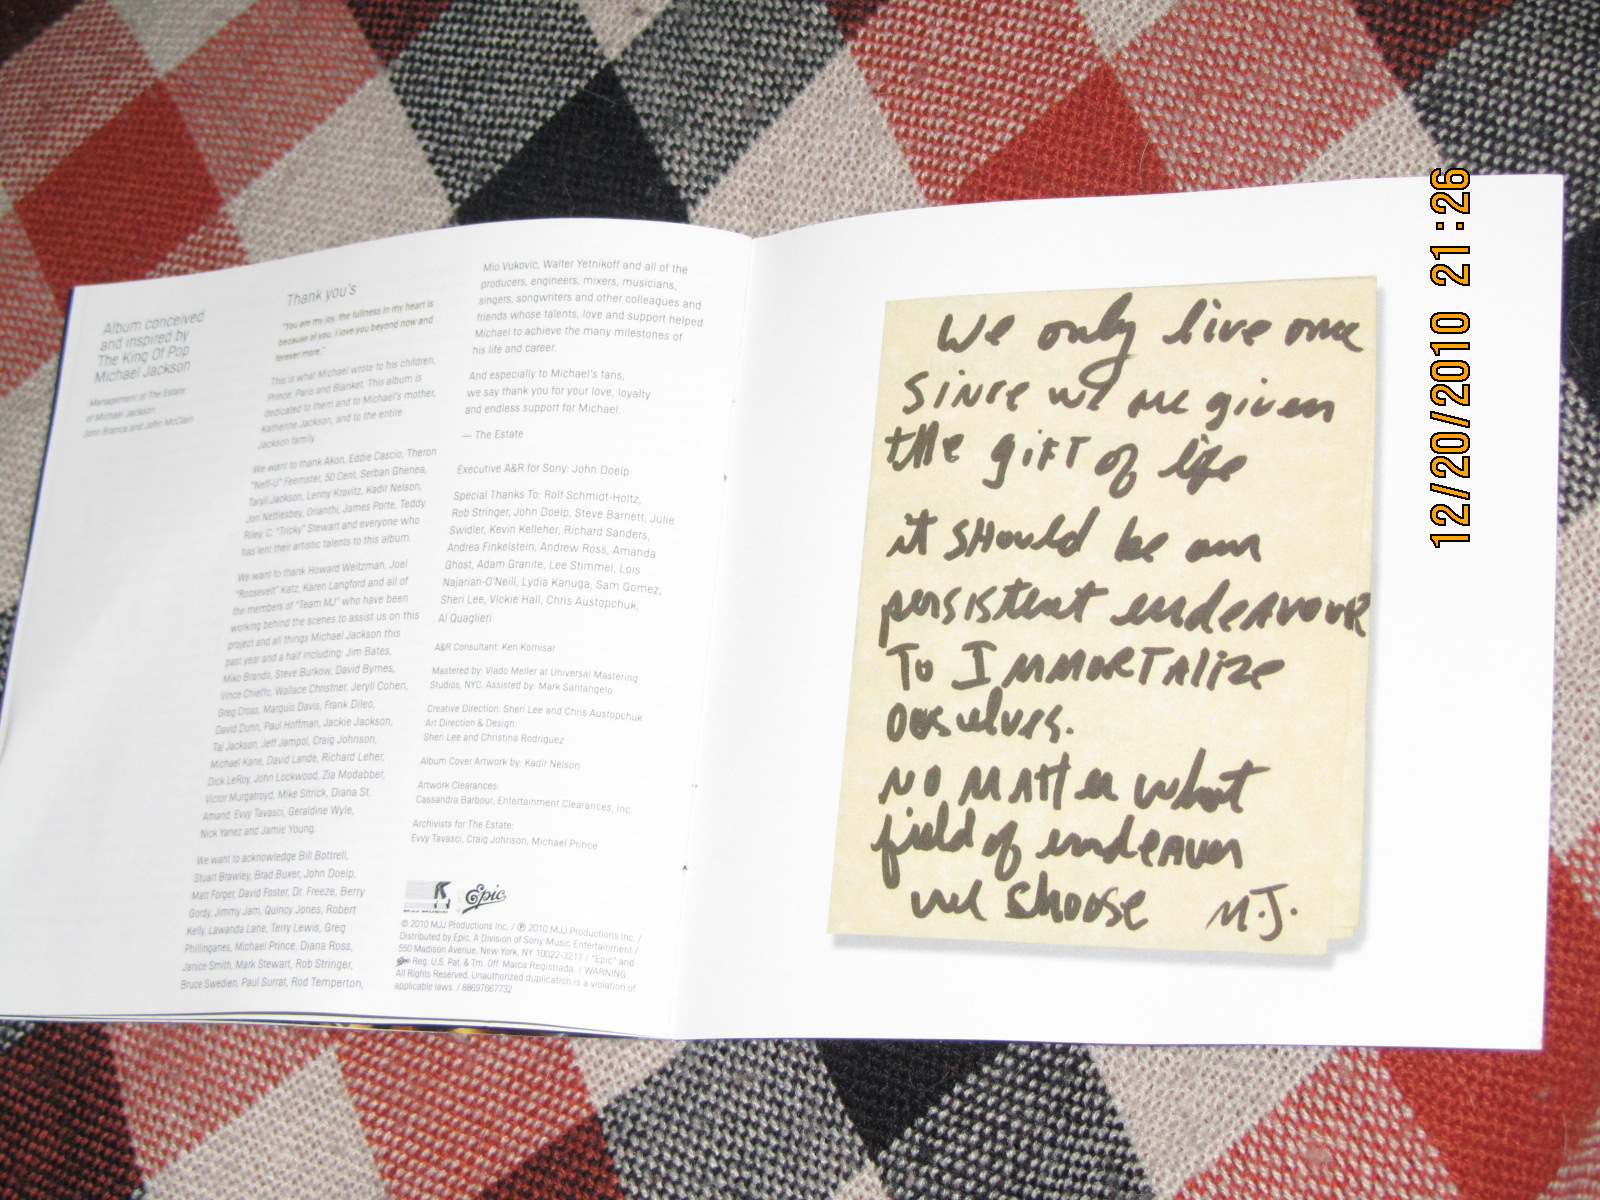 Album conceived
and inspired by
The King Of Pop
Michael Jackson
Management of The Estate
of Michael Jackson:
John Branca and John McClain
Thank you's
"You are my joy, the fullness in my heart is
because of you. I love you beyond now and
forever more."
This is what Michael wrote to his children,
Prince, Paris and Blanket. This album is
dedicated to them and to Michael's mother,
Katherine Jackson, and to the entire
Jackson family.
We want to thank Akon, Eddie Cascio, Theron
"Neff-U" Feemster, 50 Cent, Serban Ghenea,
Taryll Jackson, Lenny Kravitz, Kadir Nelson,
Jon Nettlesbey, Orianthi, James Porte, Teddy
Riley, C. "Tricky" Stewart and everyone who
has lent their artistic talents to this album.
We want to thank Howard Weitzman, Joel
"Roosevelt" Katz, Karen Langford and all of
the members of "Team MJ" who have been
working behind the scenes to assist us on this
project and all things Michael Jackson this
past year and a half including: Jim Bates,
Miko Brando, Steve Burkow, David Byrnes,
Vince Chieffo, Wallace Christner, Jeryll Cohen,
Greg Cross, Marquis Davis, Frank Dileo,
David Dunn, Paul Hoffman, Jackie Jackson,
Taj Jackson, Jeff Jampol, Craig Johnson,
Michael Kane, David Lande, Richard Leher,
Dick LeRoy, John Lockwood, Zia Modabber,
Victor Murgatroyd, Mike Sitrick, Diana St.
Amand, Evvy Tavasci, Geraldine Wyle,
Nick Yanez and Jamie Young.
We want to acknowledge Bill Bottrell,
Stuart Brawley, Brad Buxer, John Doelp,
Matt Forger, David Foster, Dr. Freeze, Berry
Gordy, Jimmy Jam, Quincy Jones, Robert
Kelly, Lawanda Lane, Terry Lewis, Greg
Phillinganes, Michael Prince, Diana Ross,
Janice Smith, Mark Stewart, Rob Stringer,
Bruce Swedien, Paul Surrat, Rod Temperton,
Mio Vukovic, Walter Yetnikoff and all of the
producers, engineers, mixers, musicians,
singers, songwriters and other colleagues and
friends whose talents, love and support helped
Michael to achieve the many milestones of
his life and career.
And especially to Michael's fans,
we say thank you for your love, loyalty
and endless support for Michael.
— The Estate
Executive A&R for Sony: John Doelp
Special Thanks To: Rolf Schmidt-Holtz,
Rob Stringer, John Doelp, Steve Barnett, Julie
Swidler, Kevin Kelleher, Richard Sanders,
Andrea Finkelstein, Andrew Ross, Amanda
Ghost, Adam Granite, Lee Stimmel, Lois
Najarian-O'Neill, Lydia Kanuga, Sam Gomez,
Sheri Lee, Vickie Hall, Chris Austopchuk,
Al Quaglieri
A&R Consultant: Ken Komisar
Mastered by: Vlado Meller at Universal Mastering
Studios, NYC. Assisted by: Mark Santangelo
Creative Direction: Sheri Lee and Chris Austopchuk
Art Direction & Design:
Sheri Lee and Christina Rodriguez
Album Cover Artwork by: Kadir Nelson
Artwork Clearances:
Cassandra Barbour, Entertainment Clearances, Inc.
Archivists for The Estate:
Evvy Tavasci, Craig Johnson, Michael Prince
Epic
© 2010 MJJ Productions Inc. / ℗ 2010 MJJ Productions Inc. /
Distributed by Epic, A Division of Sony Music Entertainment /
550 Madison Avenue, New York, NY 10022-3211 / "Epic" and
Epic Reg. U.S. Pat. & Tm. Off. Marca Registrada. / WARNING:
All Rights Reserved. Unauthorized duplication is a violation of
applicable laws. / 88697667732
We only live once
since we are given
the gift of life
it should be our
persistent endeavour
To Immortalize
ourselves.
No matter what
field of endeavor
we shoose M.J.
12/20/2010 21:26